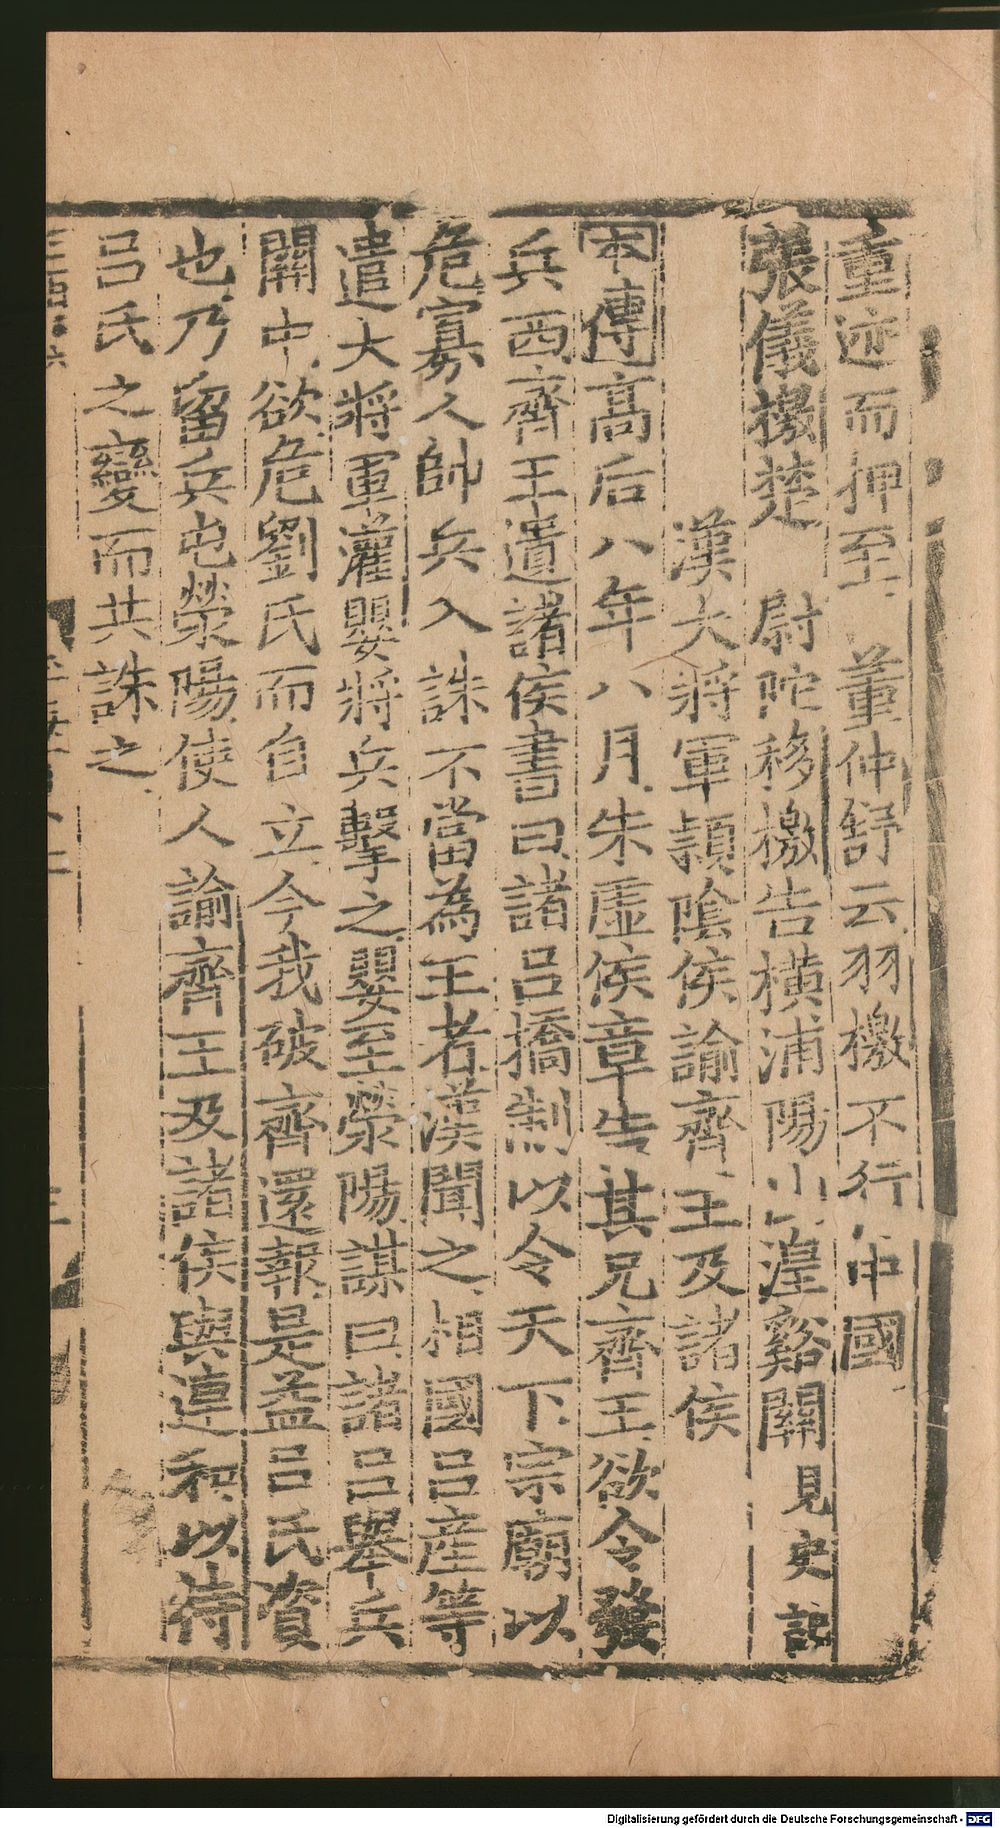 重迹而押至　董仲舒云羽檄不行中國
張儀檄楚　尉陀移檄告横浦陽山湟谿關見史記
漢大將軍頴隂侯諭齊王及諸侯
本傳高后八年八月朱虚侯章告其兄齊王欲令發
兵西齊王遺諸侯書曰諸吕擅制以令天下宗廟以
危寡人帥兵入誅不當為王者漢聞之相國吕産等
遣大將軍灌嬰將兵擊之嬰至滎陽謀曰諸吕舉兵
關中欲危劉氏而自立今我破齊還報是益吕氏資
也乃留兵屯滎陽使人諭齊王及諸侯與連和以待
吕氏之變而共誅之
Digitalisierung gefördert durch die Deutsche Forschungsgemeinschaft - DFG